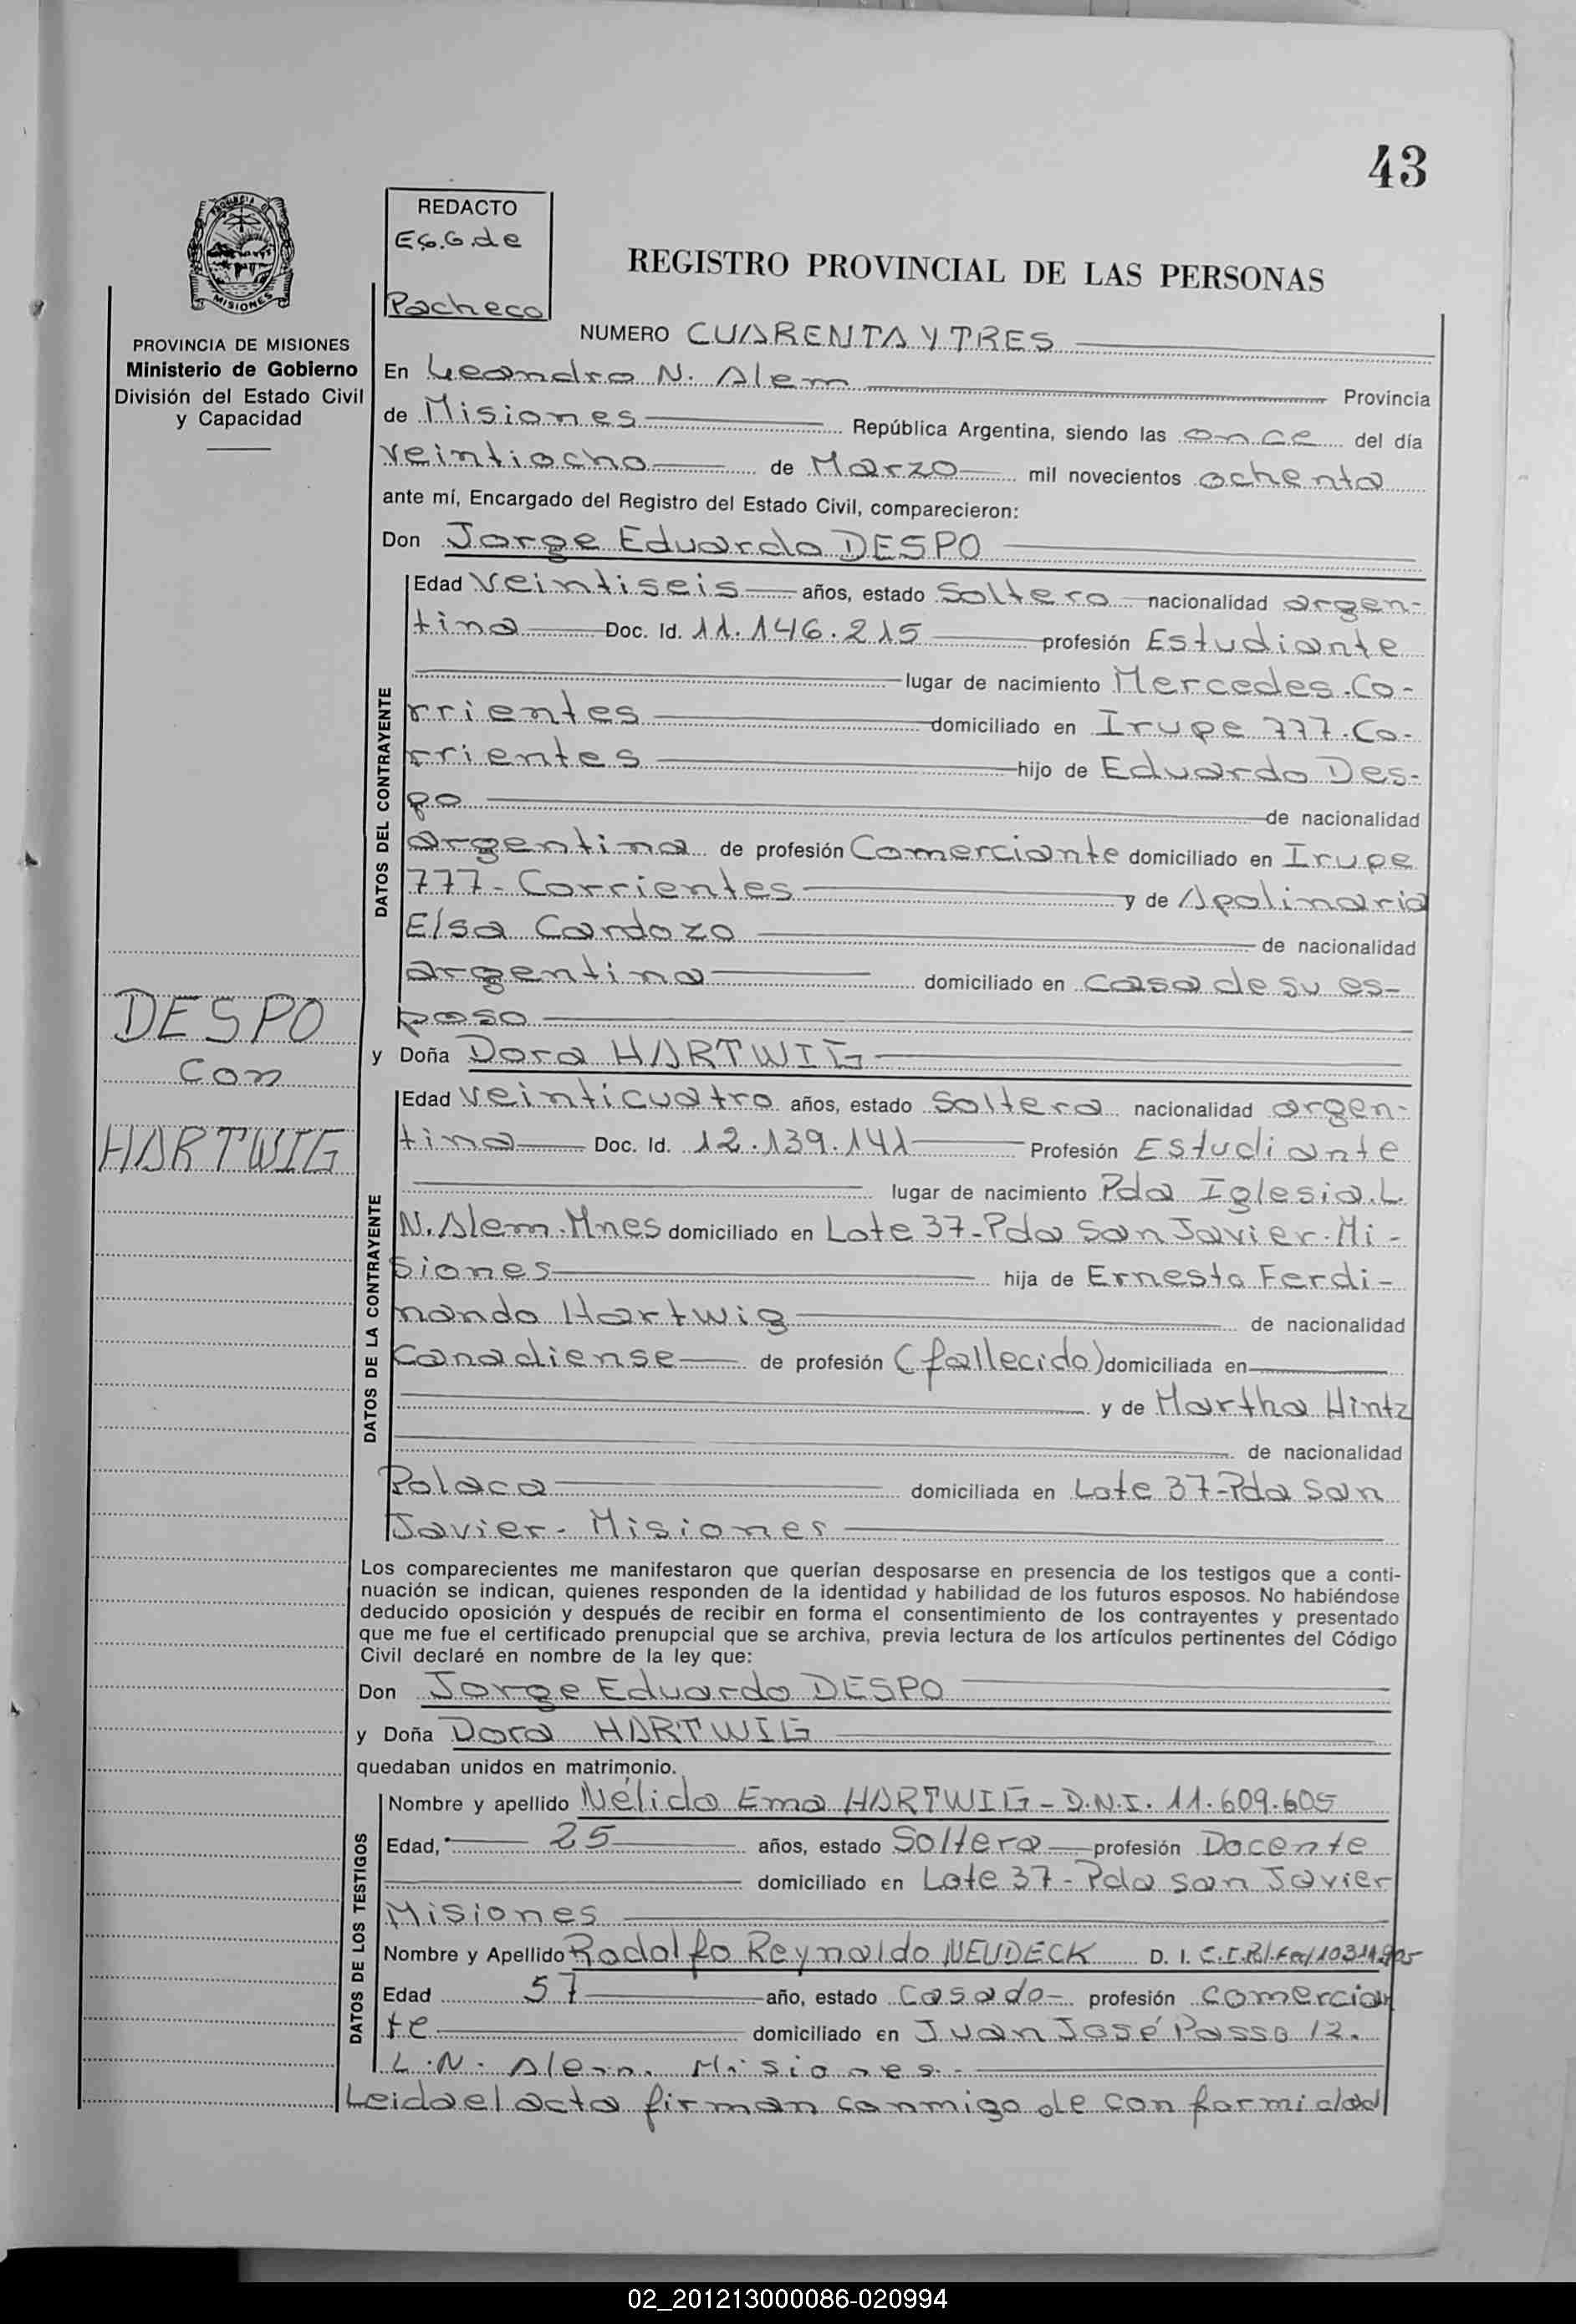 43
REDACTO
E.G.G.de
Pacheco
REGISTRO PROVINCIAL DE LAS PERSONAS
MISIONES
PROVINCIA DE MISIONES
Ministerio de Gobierno
División del Estado Civil
y Capacidad
NUMERO CUARENTA Y TRES
En Leandro N. Alem Provincia
de Misiones República Argentina, siendo las once del día
veintiocho de Marzo mil novecientos ochenta
ante mí, Encargado del Registro del Estado Civil, comparecieron:
Don Jorge Eduardo DESPO
DATOS DEL CONTRAYENTE
Edad veintiseis años, estado Soltero nacionalidad argen-
tina Doc. Id. 11.146.215 profesión Estudiante
lugar de nacimiento Mercedes.Co-
rrientes domiciliado en Irupe 777.Co-
rrientes hijo de Eduardo Des-
po de nacionalidad
argentina de profesión Comerciante domiciliado en Irupe
777-Corrientes y de Apolinaria
Elsa Cardozo de nacionalidad
argentina domiciliado en casa de su es-
poso
DESPO
con
HARTWIG
y Doña Dora HARTWIG
DATOS DE LA CONTRAYENTE
Edad veinticuatro años, estado Soltera nacionalidad argen-
tina Doc. Id. 12.139.141 Profesión Estudiante
lugar de nacimiento Pda Iglesia.L.
N.Alem.Mnes domiciliado en Lote 37-Pda San Javier.Mi-
siones hija de Ernesto Ferdi-
nando Hartwig de nacionalidad
Canadiense de profesión (fallecido) domiciliada en
y de Martha Hintz
de nacionalidad
Polaca domiciliada en Lote 37-Pda San
Javier- Misiones
Los comparecientes me manifestaron que querían desposarse en presencia de los testigos que a conti-
nuación se indican, quienes responden de la identidad y habilidad de los futuros esposos. No habiéndose
deducido oposición y después de recibir en forma el consentimiento de los contrayentes y presentado
que me fue el certificado prenupcial que se archiva, previa lectura de los artículos pertinentes del Código
Civil declaré en nombre de la ley que:
Don Jorge Eduardo DESPO
y Doña Dora HARTWIG
quedaban unidos en matrimonio.
DATOS DE LOS TESTIGOS
Nombre y apellido Nélida Ema HARTWIG-D.N.I. 11.609.605
Edad, 25 años, estado Soltera profesión Docente
domiciliado en Lote 37-Pda San Javier
Misiones
Nombre y Apellido Rodolfo Reynaldo NEUDECK D. I. C.I.
Edad 57 año, estado Casado profesión comercian
te domiciliado en Juan José Passo 12.
L.N. Alem. Misiones-
Leida el acta firman conmigo de conformidad
02_201213000086-020994